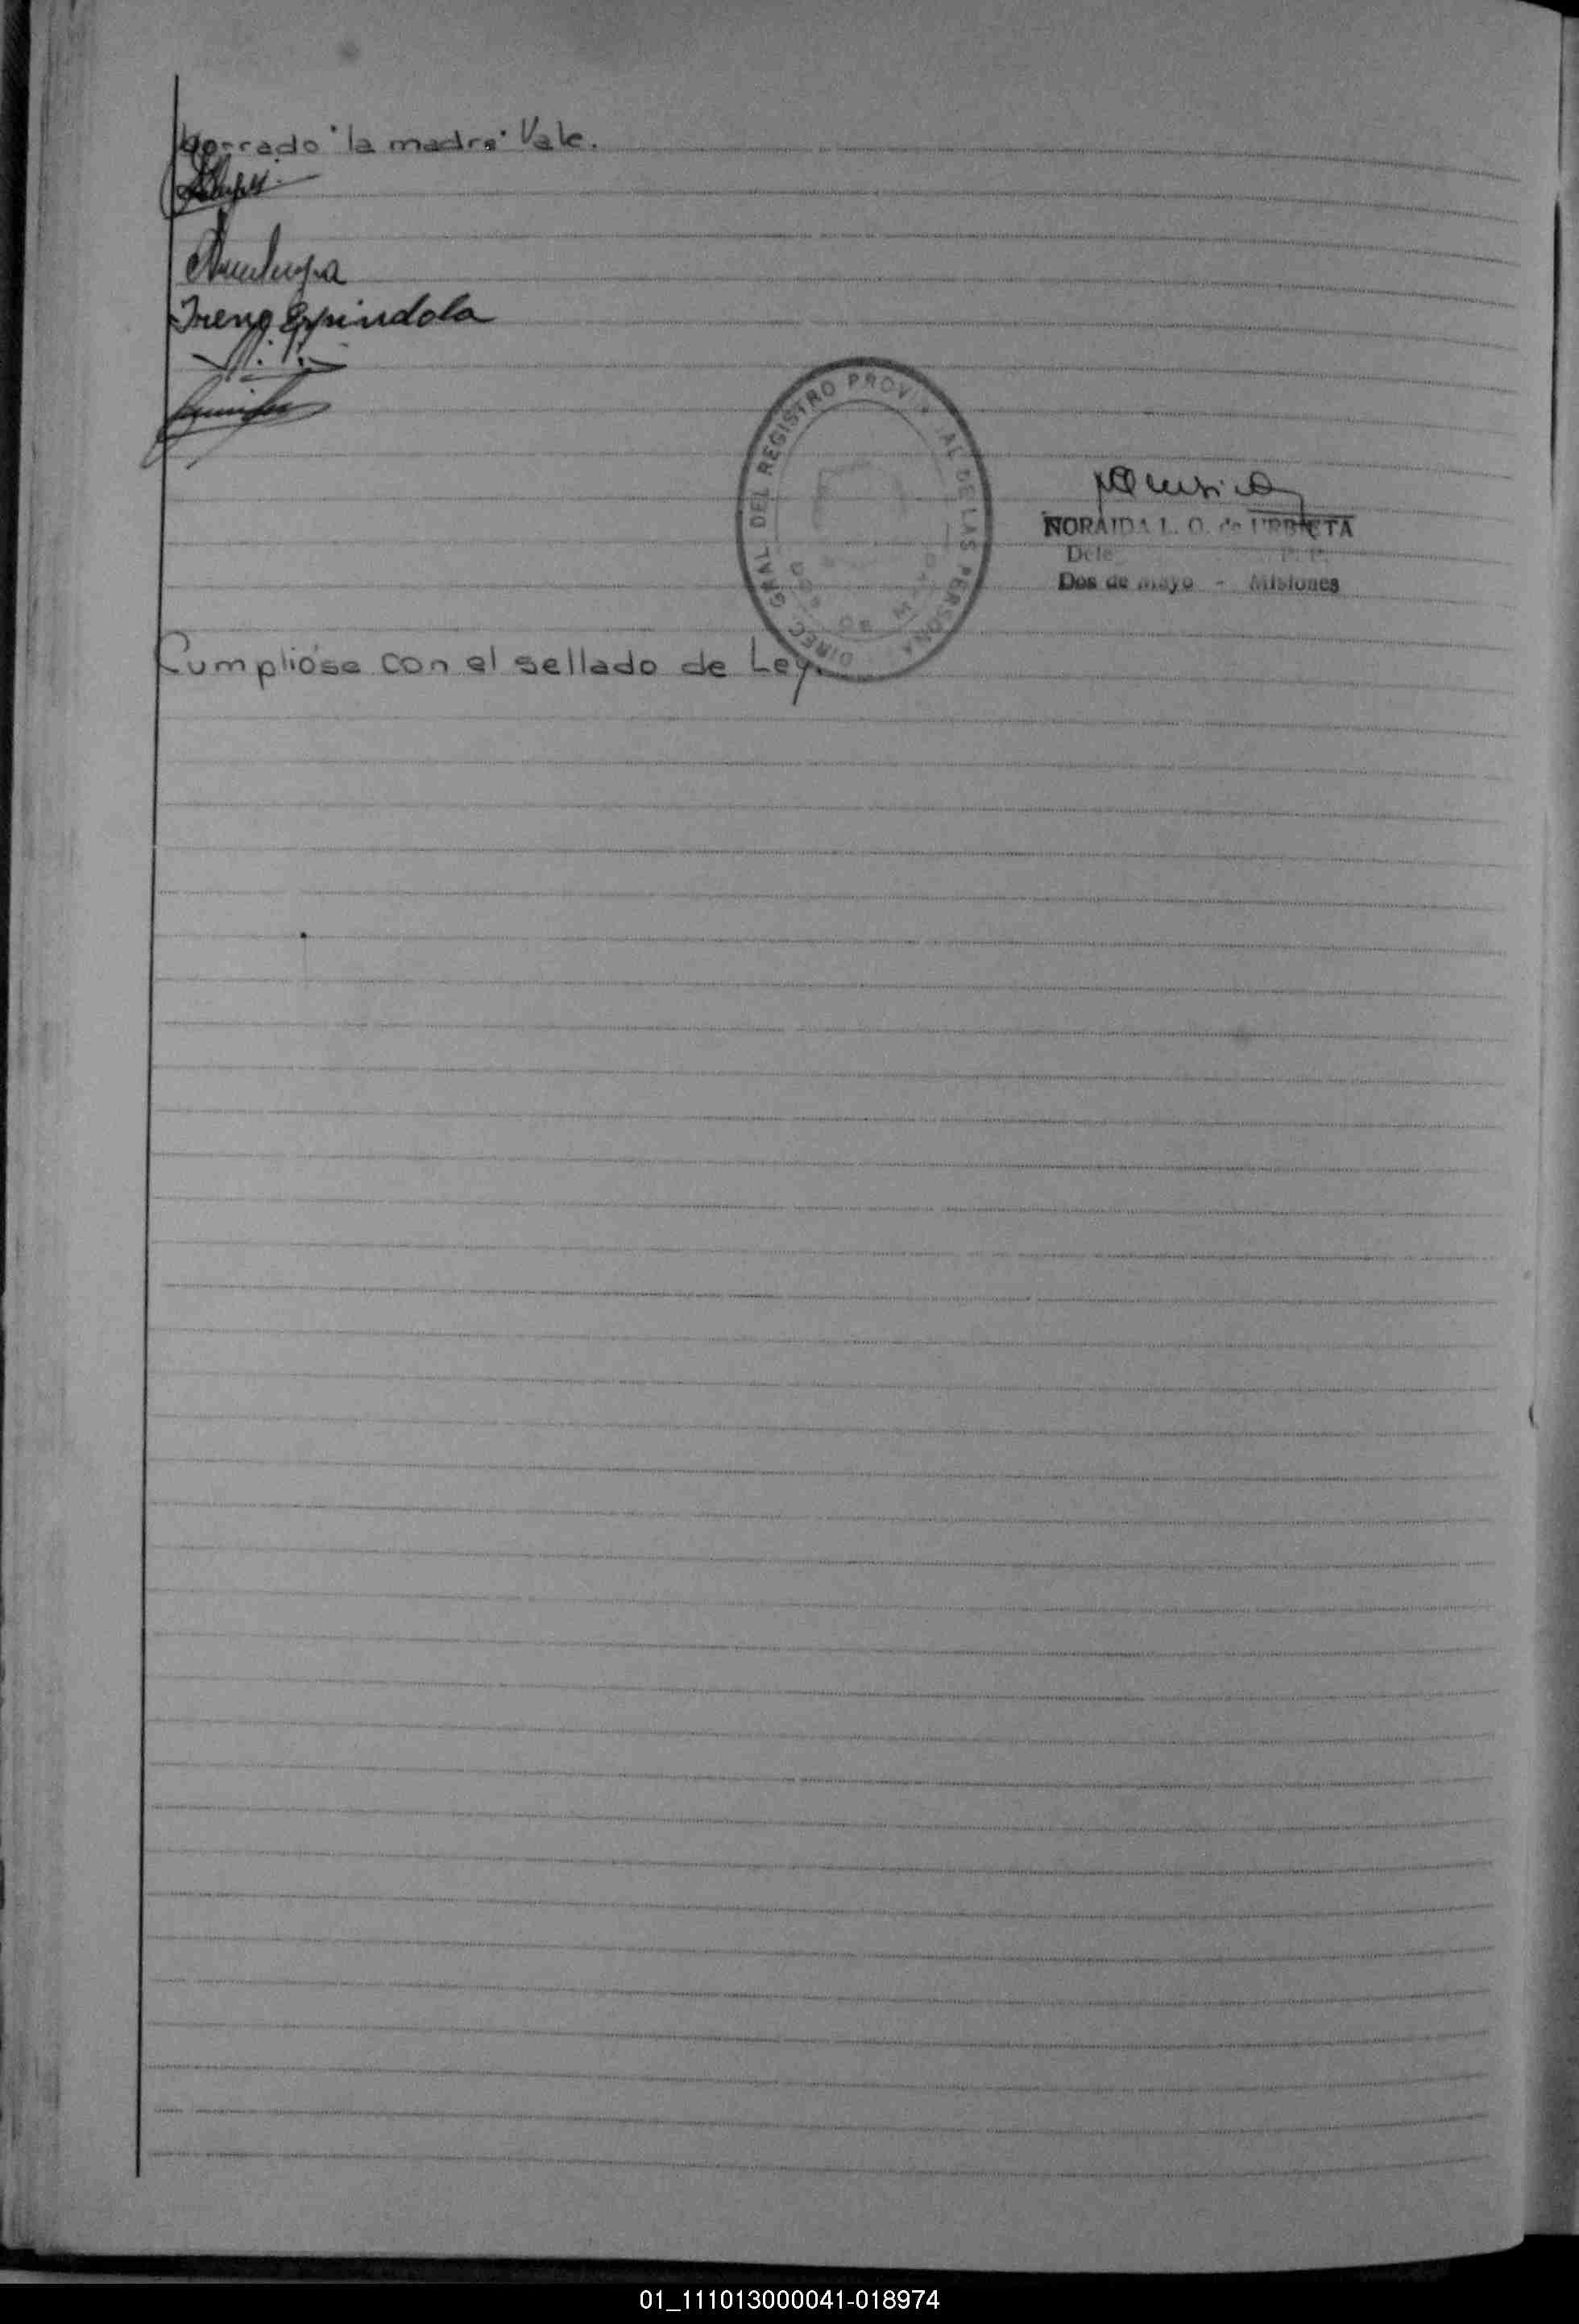 borrado "la madre" Vale.
Ireneo Espindola
DIREC. GRAL. DEL REGISTRO PROVINCIAL DE LAS PERSONAS
DOS DE MAYO
NORAIDA L. O. de URBIETA
Dos de Mayo - Misiones
Cumplióse con el sellado de Ley.
01_111013000041-018974